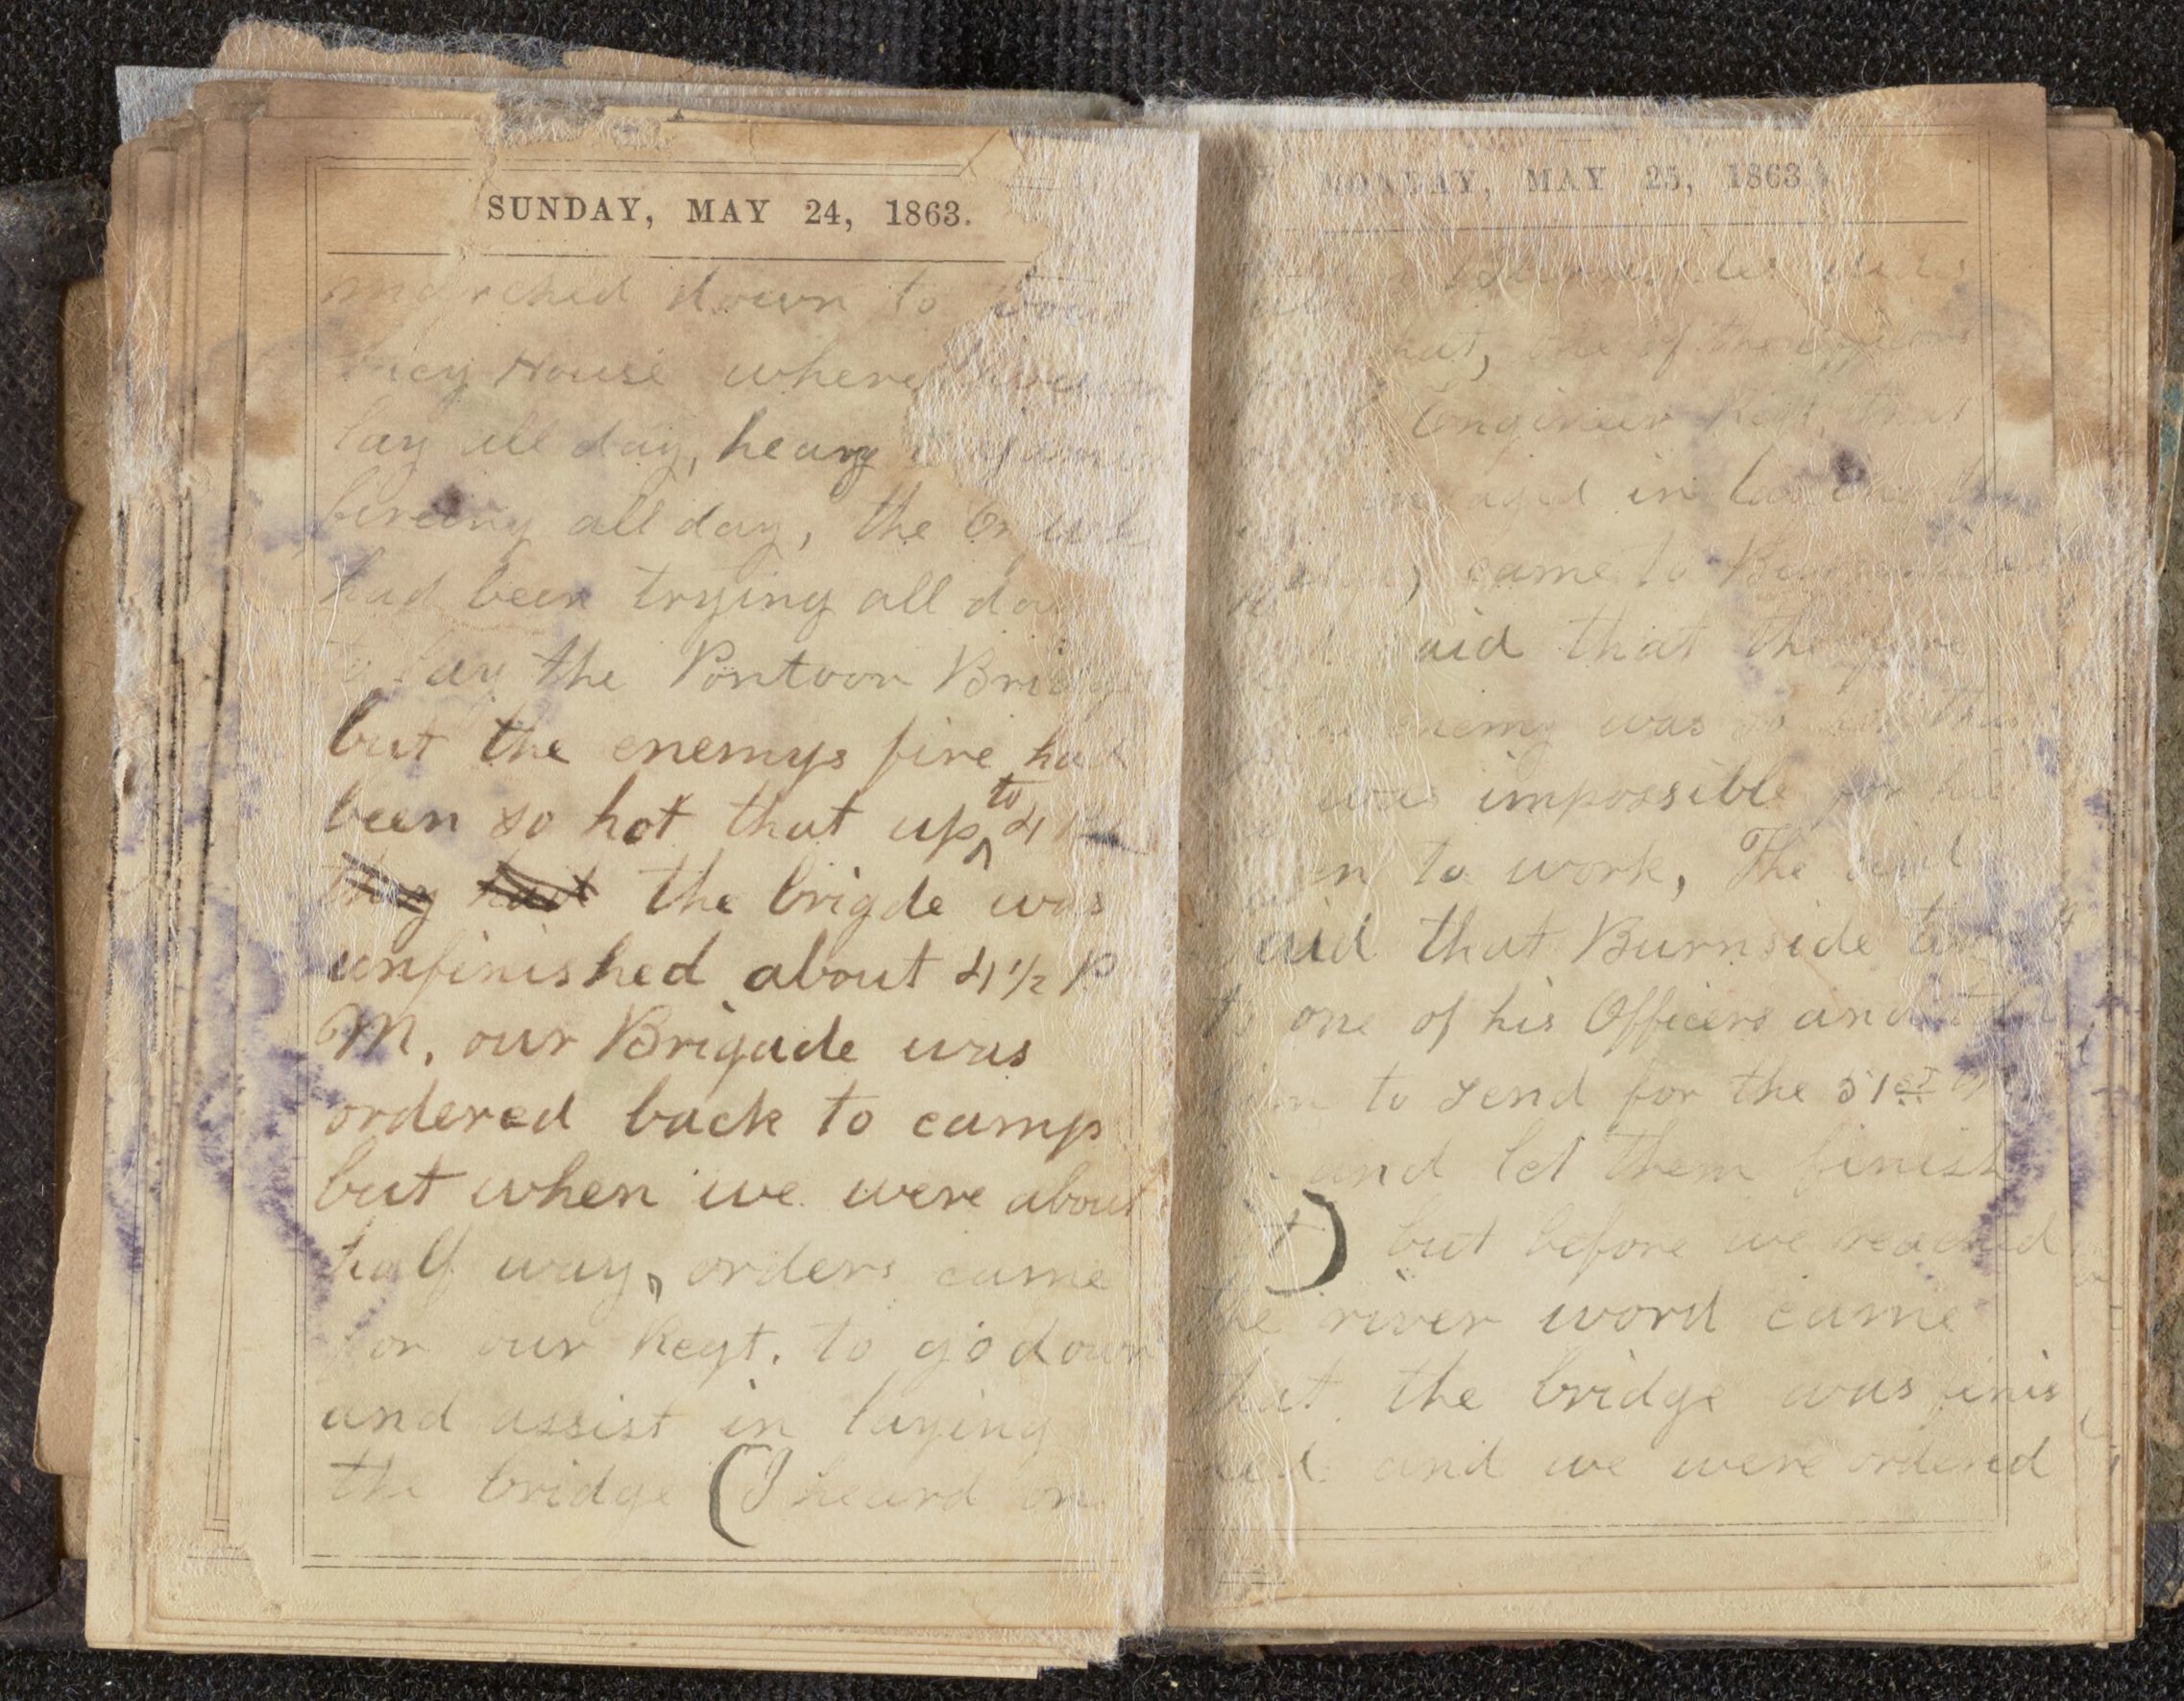 SUNDAY, MAY 24, 1863.
marched down to
House where
lay all day, heavy
fireing all day, the
had been trying all day
to lay the Pontoon Bridge
but the enemys fire had
been so hot that up to 4
they had the brigde was
unfinished about 4 1/2 P
M. our Brigade was
ordered back to camp
but when we were about
half way, orders came
for our Regt. to go down
and assist in laying
the bridge (I heard
MONDAY, MAY 25, 1863.
that, one of the
Engineer Regt. that
engaged in laying the
came to
said that the fire
enemy was so hot that
was impossible for his
men to work, The
said that Burnside
to one of his Officers and
him to send for the 51st
and let them finish
it) but before we reached
the river word came
that the bridge was finis
hed and we were ordered